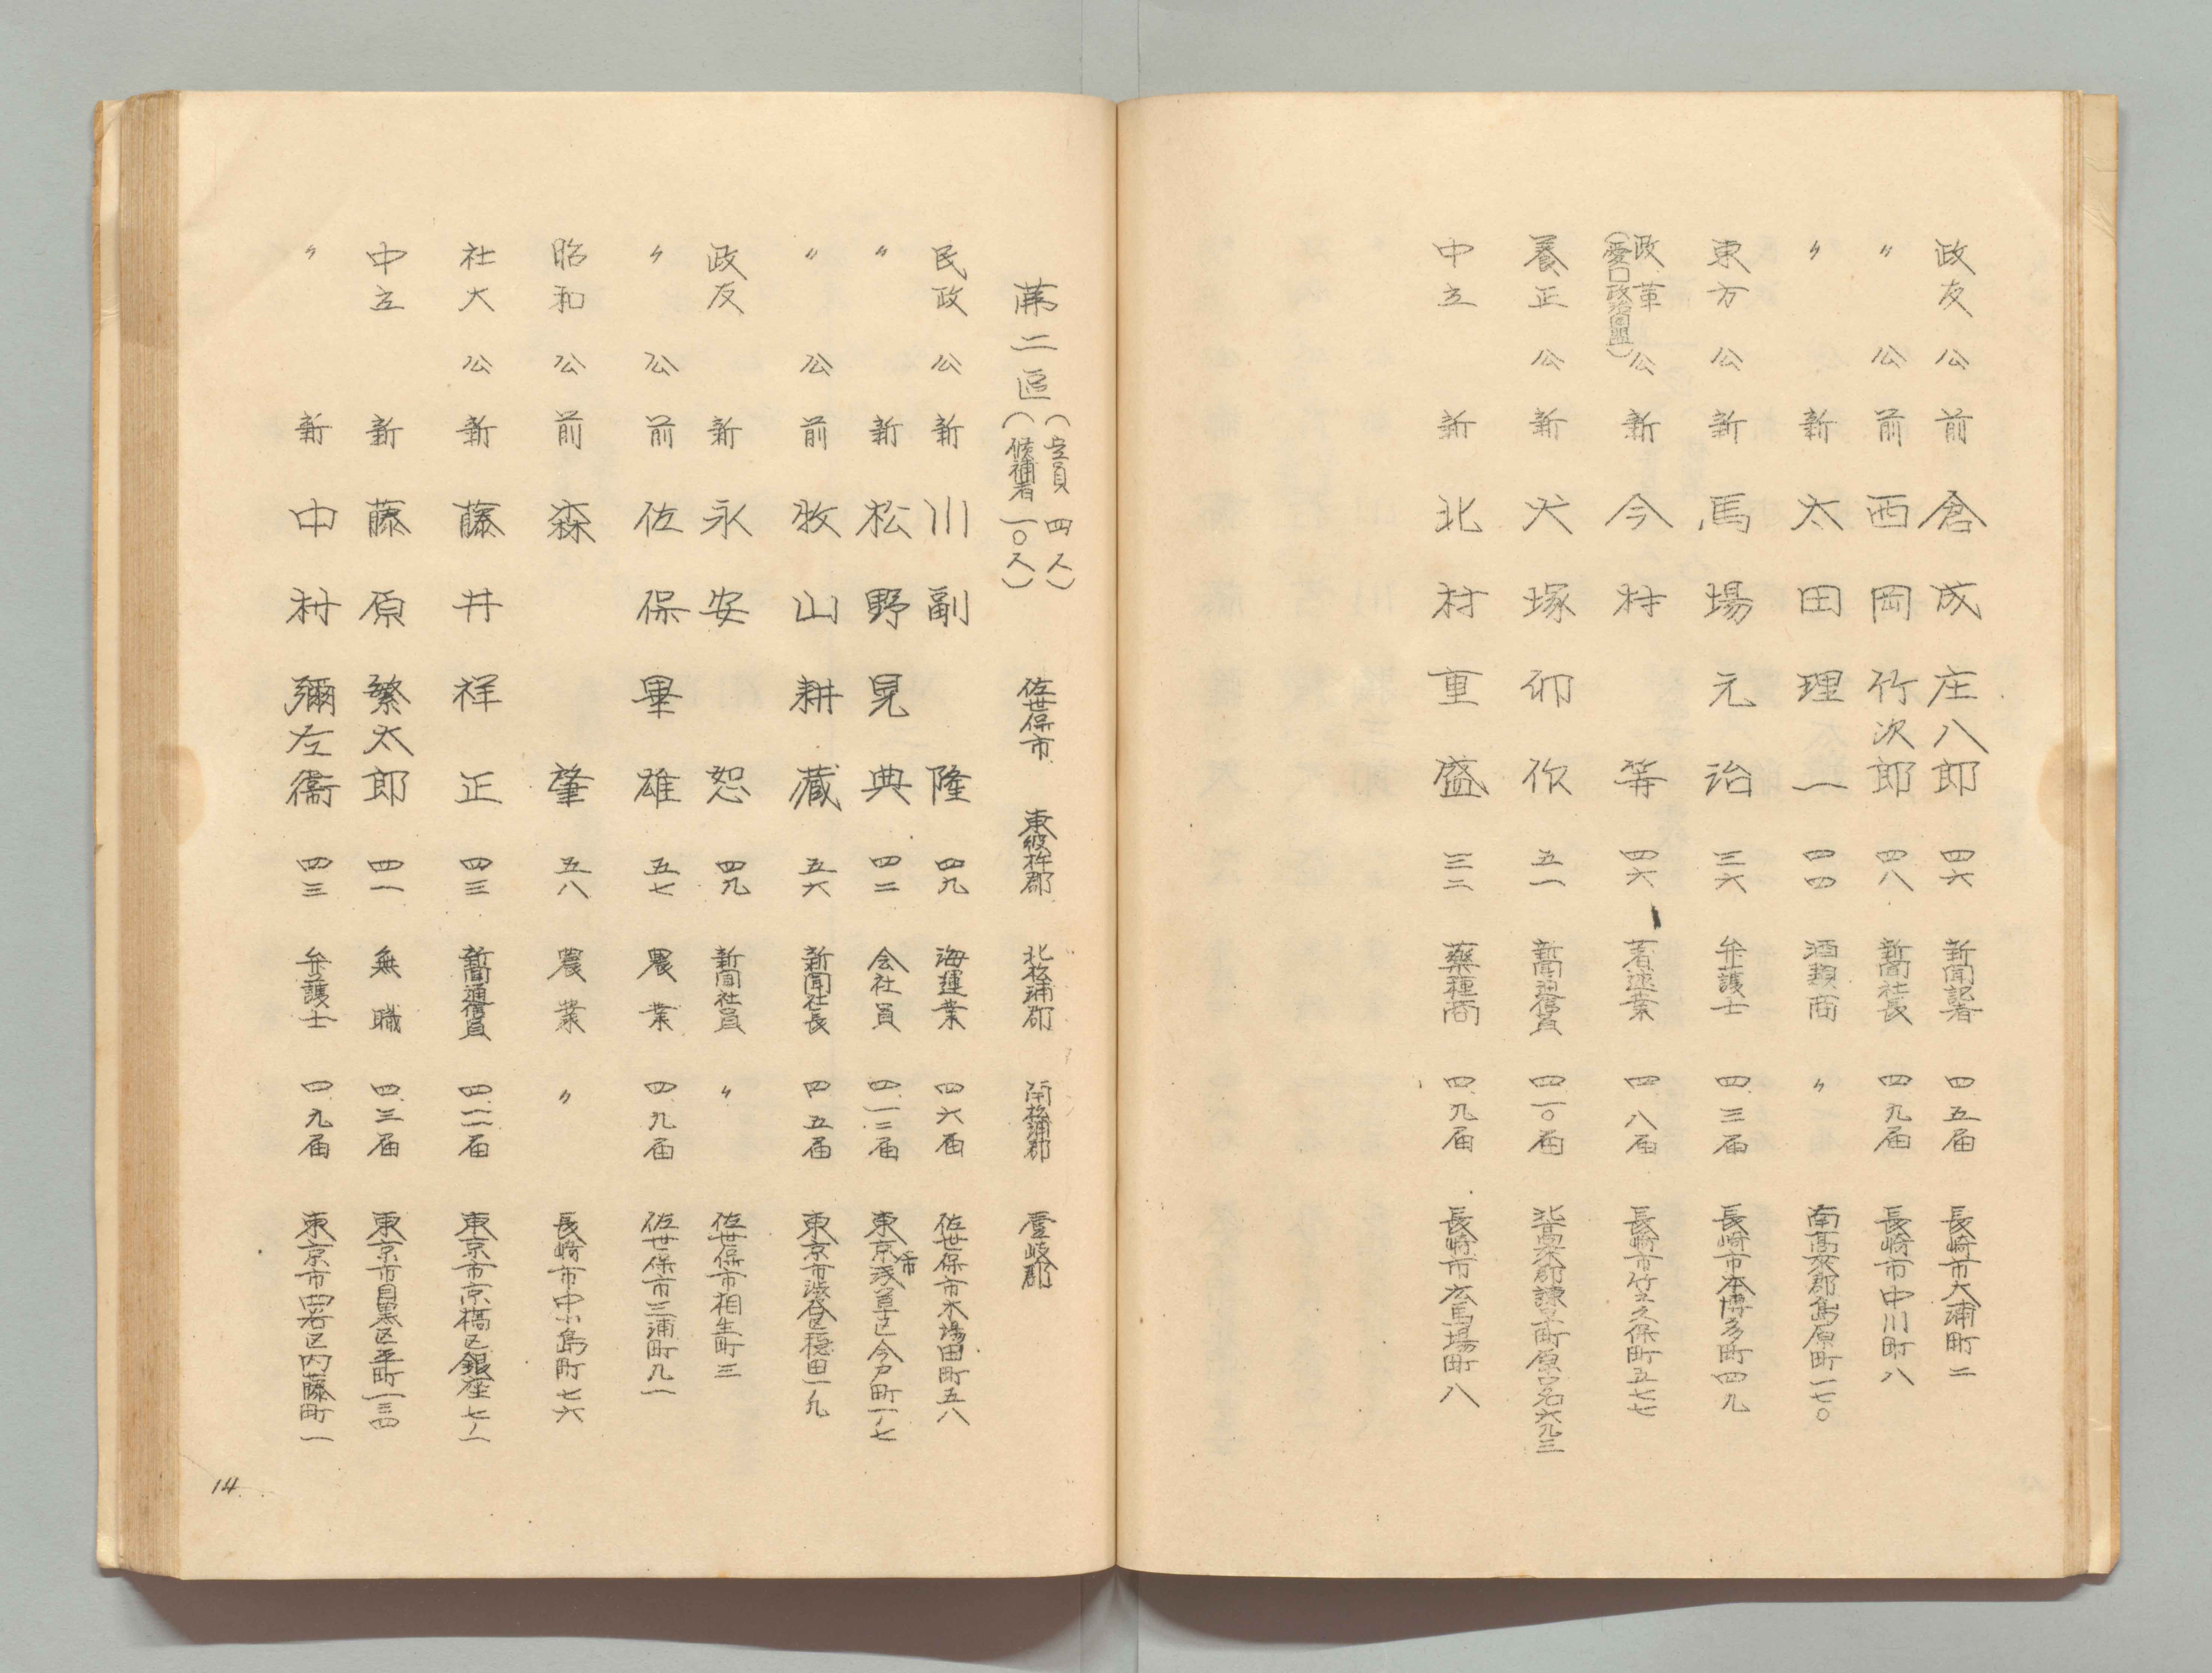 政友 公 前 倉成庄八郎 四六 新聞記者 四、五届 長崎市大浦町二
〃 公 前 西岡竹次郎 四八 新聞社長 四、九届 長崎市中川町八
〃 新 太田理一 四四 酒類商 〃 南高来郡島原町一七〇
東方 公 新 馬場元治 三六 弁護士 四、三届 長崎市本博多町四九
政革 公 新 今村等 四六 著述業 四、八届 長崎市竹之久保町五七七
(愛国政治同盟)
養正 公 新 犬塚卯作 五一 新聞通信員 四、一〇届 北高来郡諫早町原口名六九三
中立 新 北村重盛 三二 薬種商 四、九届 長崎市広馬場町八
第二區 (定員 四人) (候補者 一〇人) 佐世保市 東彼杵郡 北松浦郡 南松浦郡 壱岐郡
民政 公 新 川副隆 四九 海運業 四、六届 佐世保市木場田町五八
〃 新 松野晃典 四二 会社員 四、一二届 東京市浅草区今戸町一ノ七
〃 公 前 牧山耕蔵 五六 新聞社長 四、五届 東京市渋谷区穏田一ノ九
政友 新 永安恕 四九 新聞社員 〃 佐世保市相生町三
〃 公 前 佐保畢雄 五七 農業 四、九届 佐世保市三浦町九一
昭和 公 前 森肇 五八 農業 〃 長崎市中小島町七六
社大 公 新 藤井祥正 四三 新聞通信員 四、一一届 東京市京橋区銀座七ノ一
中立 新 藤原繁太郎 四一 無職 四、三届 東京市目黒区平町一三四
〃 新 中村彌左衞 四三 弁護士 四、九届 東京市四谷区内藤町一
14